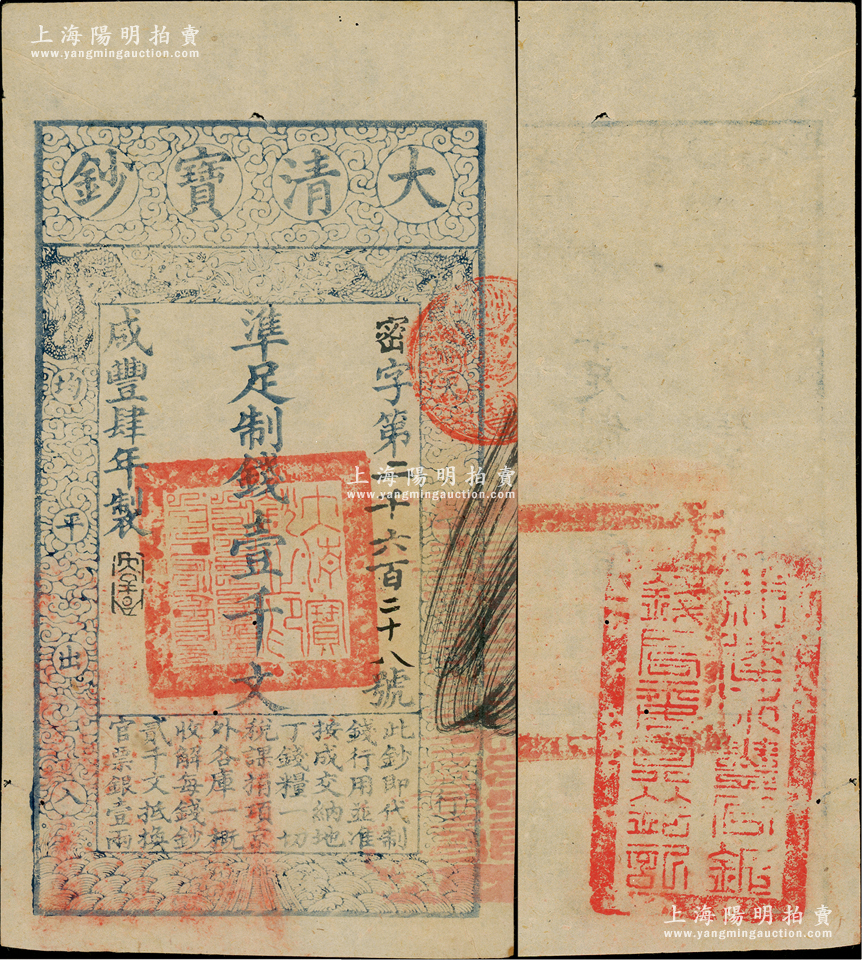 上海陽明拍賣
www.yangmingauction.com
大清寶鈔
密字第二千六百二十八號
準足制錢壹千文
咸豐肆年製
均平出入
行
此鈔即代制
錢行用並准
按成交納地
丁錢糧一切
稅課捐項京
外各庫一概
收解每錢鈔
貳千文抵換
官票銀壹兩
上海陽明拍賣
www.yangmingauction.com
上海陽明拍賣
www.yangmingauction.com